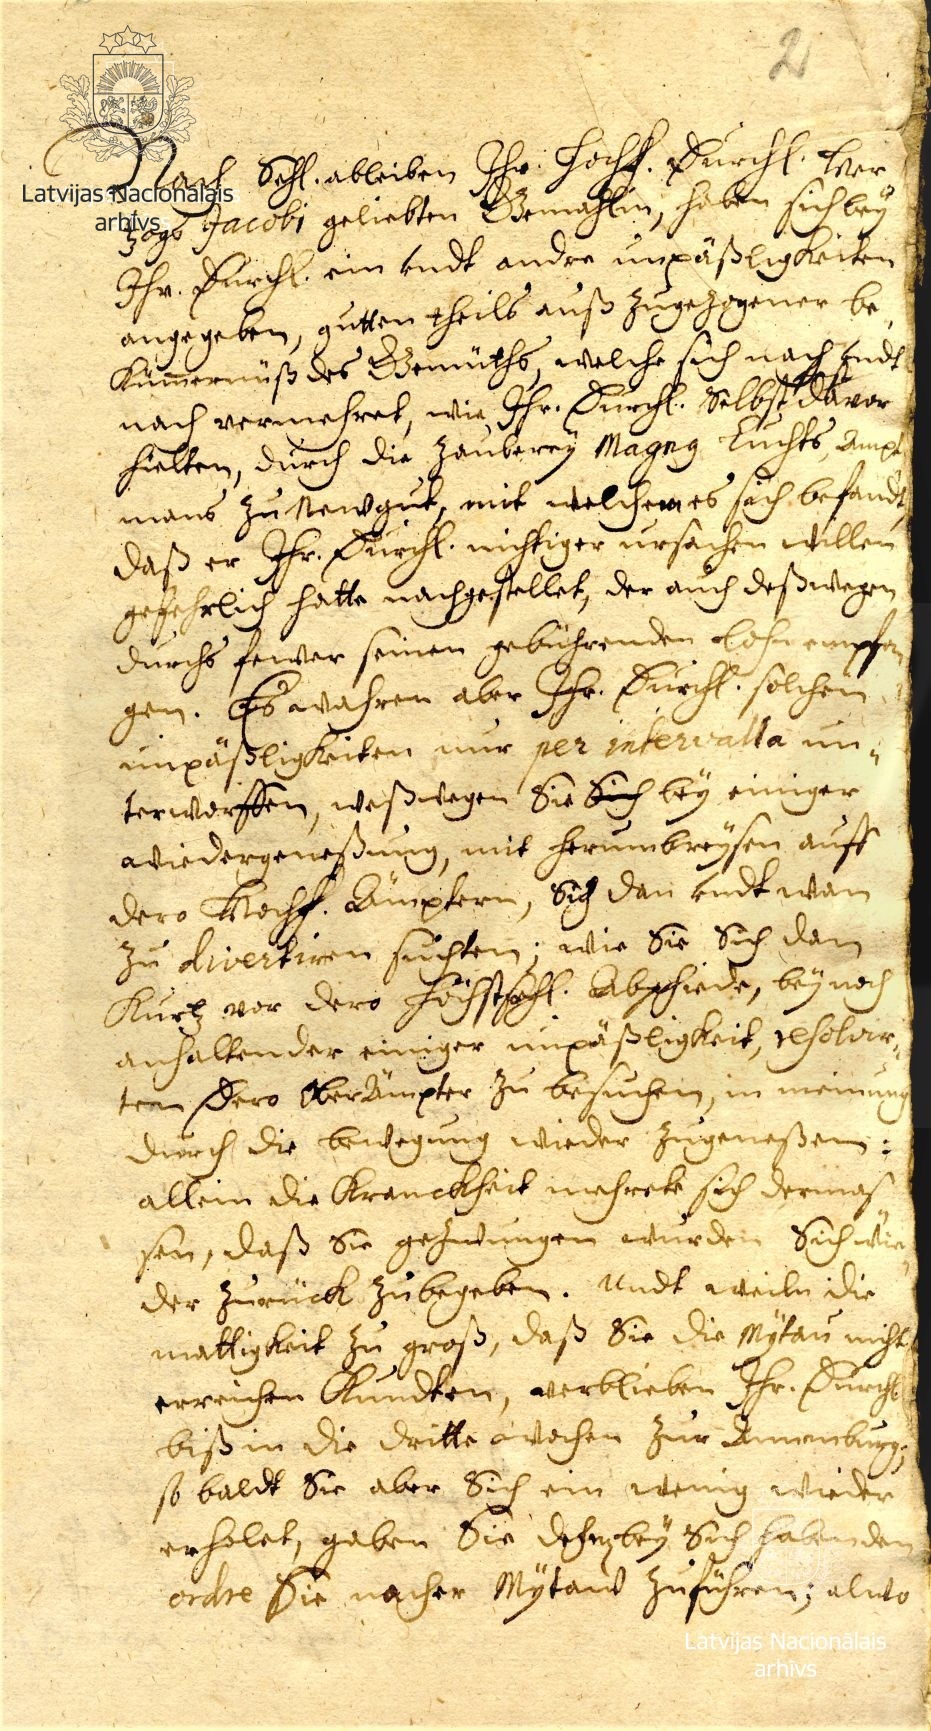 2
Nach Sehl. ableiben Ihr. Hochf. Durchl. Her
Latvijas Nacionālais
arhīvs
tzogs Jacobi geliebten Gemahlin, haben sich bey
Ihr. Durchl. ein undt andre unpäßligkeiten
angegeben, gutten theils auß zugezogener be
kümmernüß des Gemüths, welche sich nach undt
nach vermehret, wie Ihr. Durchl. Selbst davor
hielten, durch die zauberey Magng Luchts Ampt
mans zu Newgut, mit welchem es sich befandt,
daß er Ihr. Durchl. nichtiger ursachen willen
gefehrlich hatte nachgestellet, der auch deßwegen
durchs fewer seinen gebührenden lohn empfan
gen. Es wahren aber Ihr. Durchl. solchen
unpäßligkeiten nur per intervalla un-
terworffen, weßwegen Sie Sich bey einiger
wiedergeneßung, mit herumbreysen auff
dero Hochf. Ämptern, Sich dan undt wan
zu divertiren suchten; wie Sie Sich dan
kurtz vor dero Höchstsehl. Abschiede, bey noch
anhaltender einiger unpäßligkeit, resolvir-
ten Dero OberÄmpter zu besuchen, in meinung
durch die bewegung wieder zugeneßen:
allein die Kranckheit mehrete sich dermas
sen, daß Sie gezwungen wurden Sich wie
der zurück zubegeben. Undt weiln die
mattigkeit zu groß, daß Sie die Mÿtau nicht
erreichen kundten, verblieben Ihr. Durchl
biß in die dritte wochen zur Annenburg,
so baldt Sie aber Sich ein wenig wieder
erholet, gaben Sie bey Sich habenden
ordre Sie nacher Mÿtaw zuführen; alwo
Latvijas Nacionālais
arhīvs